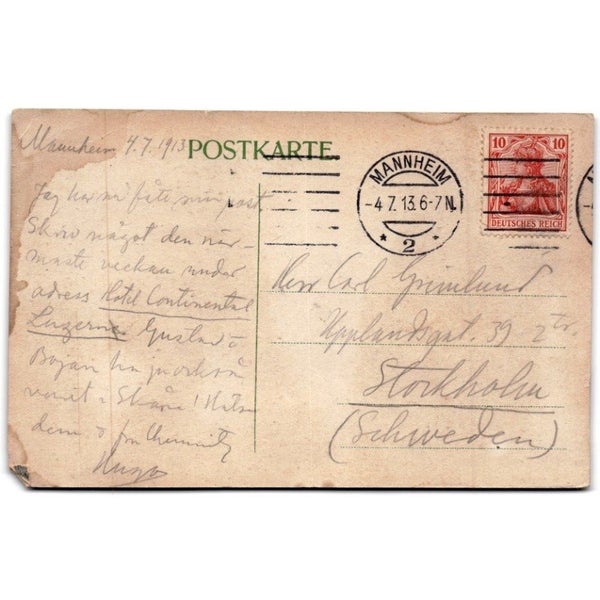 Mannheim 4.7.1913
POSTKARTE
MANNHEIM
-4.7.13.6-7N.
* 2 *
10 10
DEUTSCHES REICH
Jag har nu fått min post
Skriv något den när-
maste veckan under
adress Hotel Continental
Luzern. Gustaf o
Bojan ha ju också
varit i Skåne! Hälsa
dem o fru Chemnitz
Hugo
Herr Carl Grimlund
Upplandsgat. 39 2 tr.
Stockholm
(Schweden)